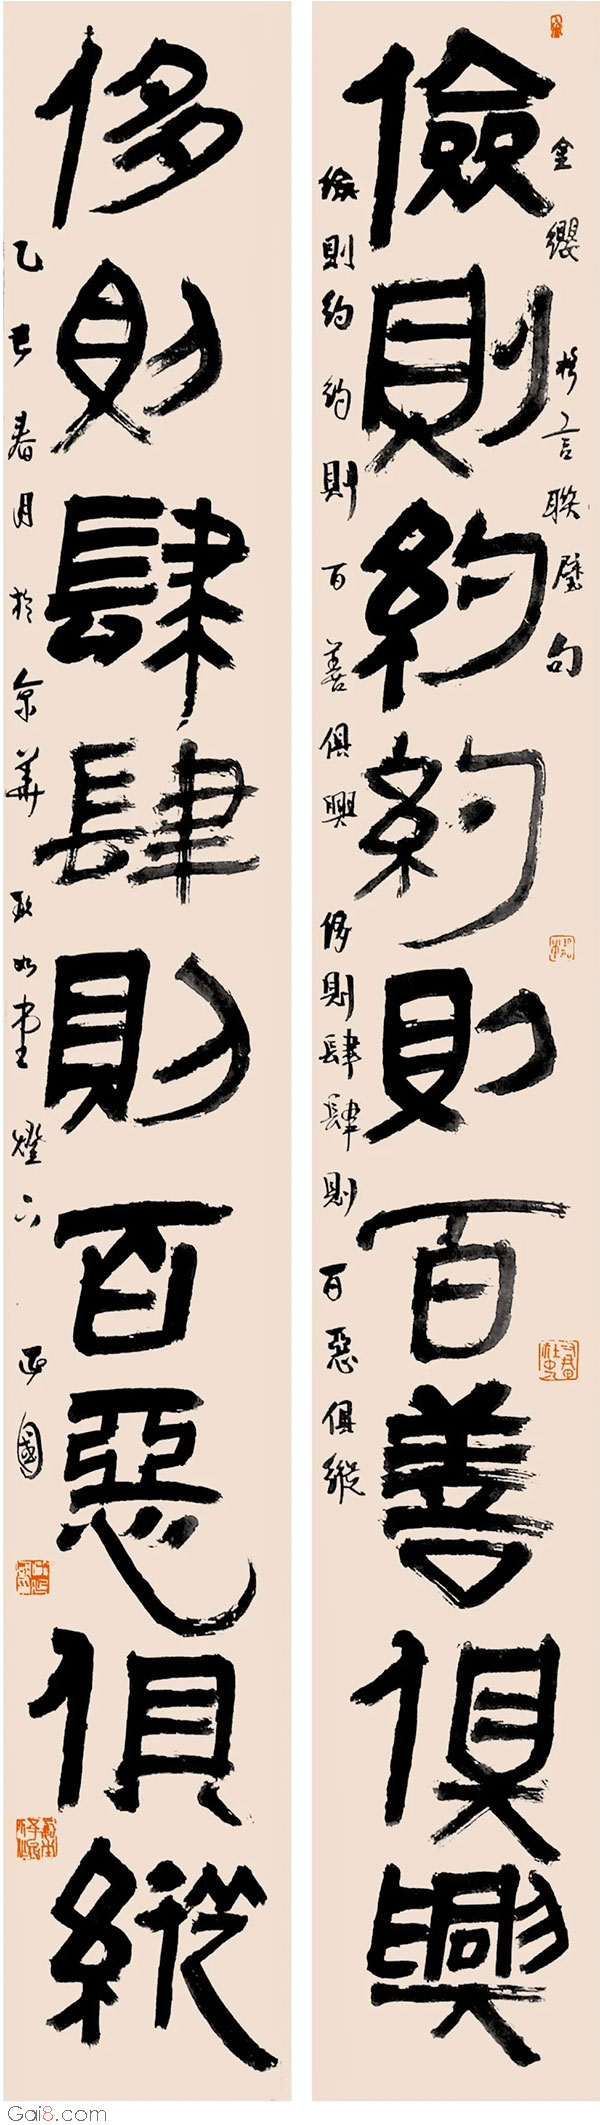 儉則約約則百善俱興
金纓格言聯璧句
儉則約約則百善俱興 侈則肆肆則百惡俱縱
侈則肆肆則百惡俱縱
乙巳春月於京華 耿如堂燈下 正國
Gai8.com